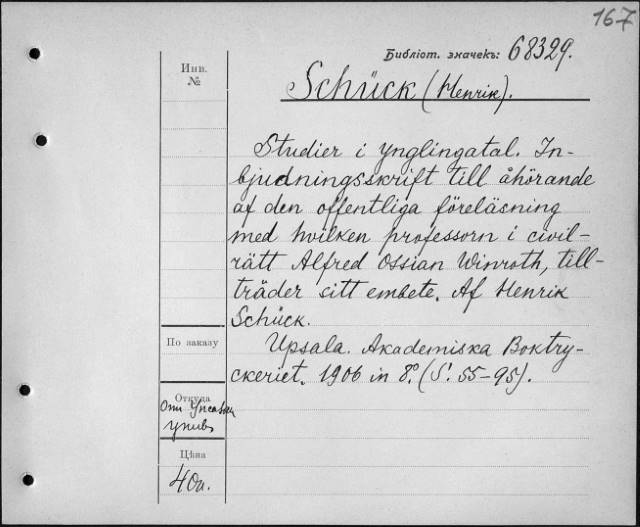 167
Библіот. значекъ: 68329.
Инв.
№
Schück (Henrik).
Studier i ynglingatal. In-
bjudningsskrift till åhörande
af den offentliga föreläsning
med hvilken professorn i civil-
rätt Alfred Ossian Winroth, till-
träder sitt embete. Af Henrik
Schück.
Upsala. Akademiska Boktry-
ckeriet. 1906 in 8º. (S. 55-95).
По заказу
Откуда
Отъ
унив.
Цѣна